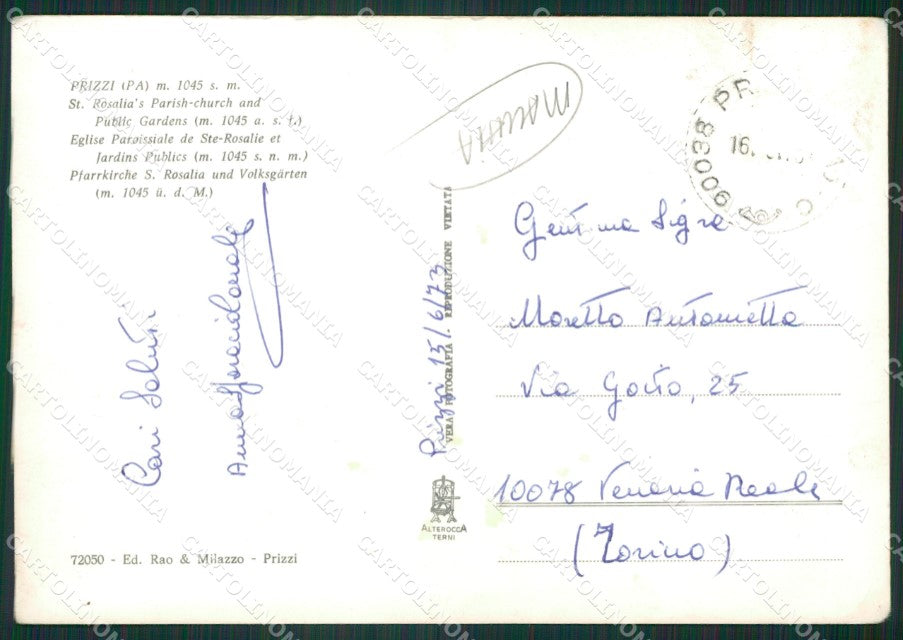 PRIZZI (PA) m. 1045 s. m.
St. Rosalia's Parish-church and
Public Gardens (m. 1045 a. s. l.)
Eglise Paroissiale de Ste-Rosalie et
Jardins Publics (m. 1045 s. n. m.)
Pfarrkirche S. Rosalia und Volksgärten
(m. 1045 ü. d. M.)
Cari Saluti
Prizzi 15/6/73
VERA FOTOGRAFIA - REPRODUZIONE VIETATA
ALTEROCCA
TERNI
72050 - Ed. Rao & Milazzo - Prizzi
90038 PR
16.
Gent.ma Sigra
Moretto Antonietta
Via Goito, 25
10078 Venaria Reale
(Torino)
CARTOLINOMANIA